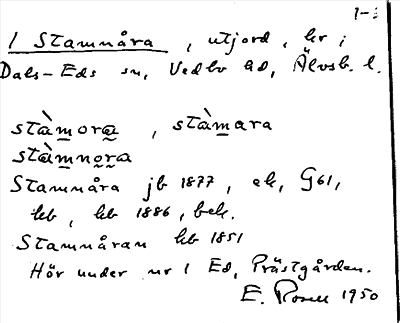 1-2
1 Stamnåra, utjord, hr i
Dals-Eds sn, Vedbo hd, Älvsb. l.
stàmora, stàmara
stàmnora
Stamnåra jb 1877, ek, G61,
kb, kb 1886, bek.
Stamnåran kb 1851
Hör under nr 1 Ed, Prästgården.
E. Rosell 1950